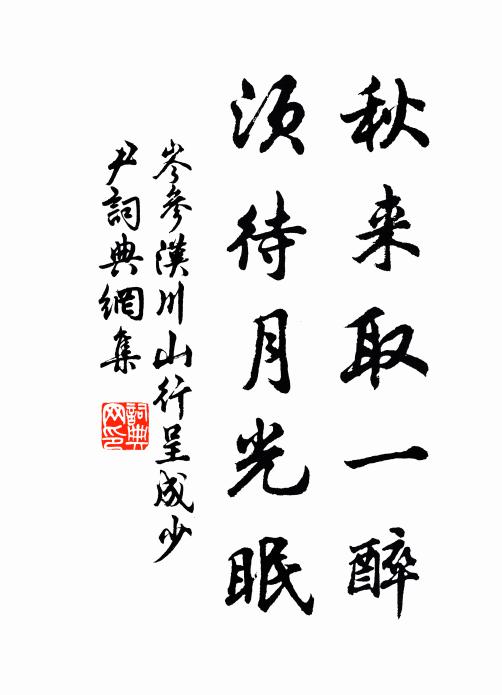 秋来取一醉
須待月光眠
岑參漢川山行呈成少
尹詞典網集
詞典
网印